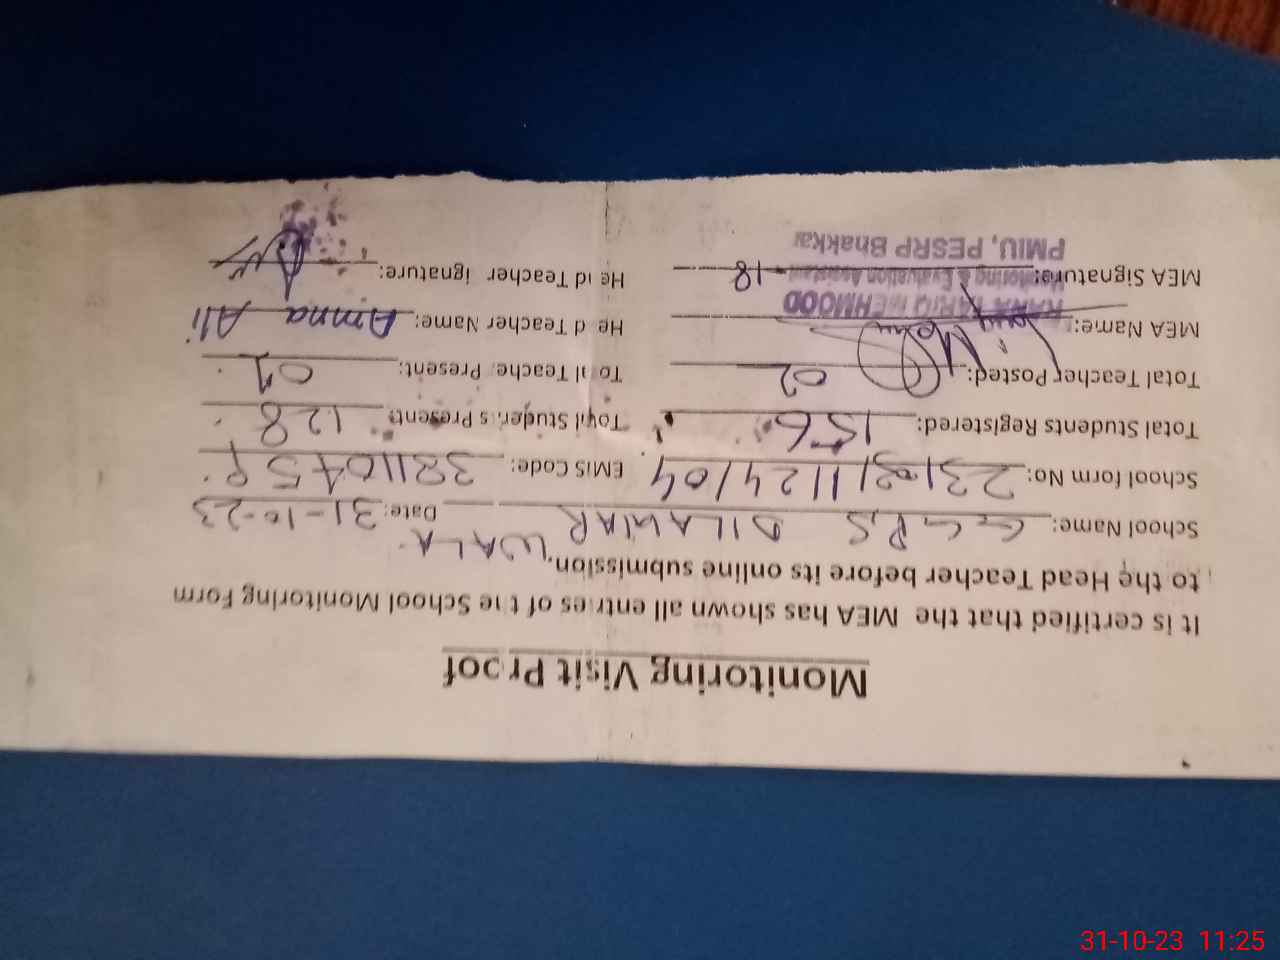 Monitoring Visit Proof
It is certified that the MEA has shown all entries of the School Monitoring Form
to the Head Teacher before its online submission.
School Name: G.G.P.S DILAWAR WALA Date: 31-10-23
School form No: EMIS Code:
Total Students Registered: 156 Total Students Present: 128
Total Teacher Posted: 02 Total Teacher Present: 01
MEA Name: Head Teacher Name: Amna Ali
RANA TARIQ MEHMOOD
Monitoring & Evaluation Assistant -18
MEA Signature: Head Teacher Signature:
PMIU, PESRP Bhakkar
31-10-23 11:25